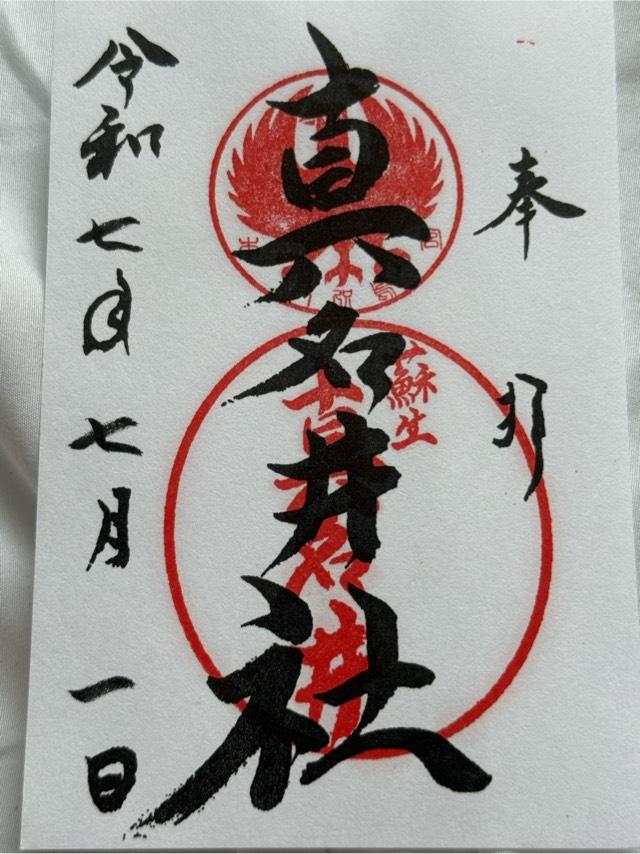 奉拝
真名井社
蘇生
真名井
令和七年七月一日